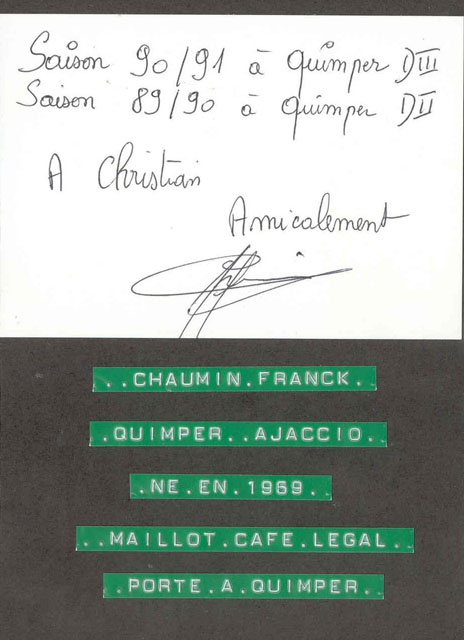 Saison 90/91 à Quimper DIII
Saison 89/90 à Quimper DII
A Christian
Amicalement
..CHAUMIN.FRANCK.
.QUIMPER..AJACCIO..
.NE.EN.1969..
..MAILLOT.CAFE.LEGAL..
.PORTE.A.QUIMPER..